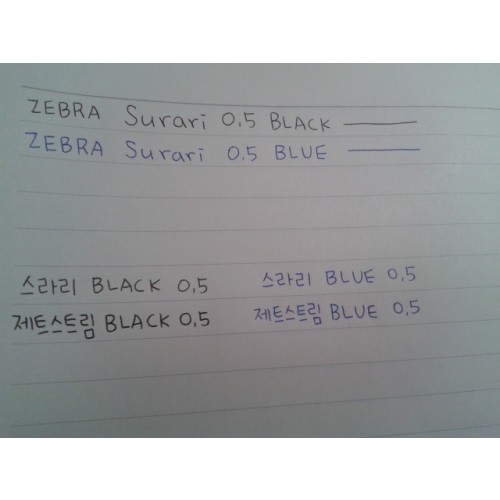 ZEBRA Surari 0.5 BLACK
ZEBRA Surari 0.5 BLUE
스라리 BLACK 0.5 스라리 BLUE 0.5
제트스트림 BLACK 0.5 제트스트림 BLUE 0.5